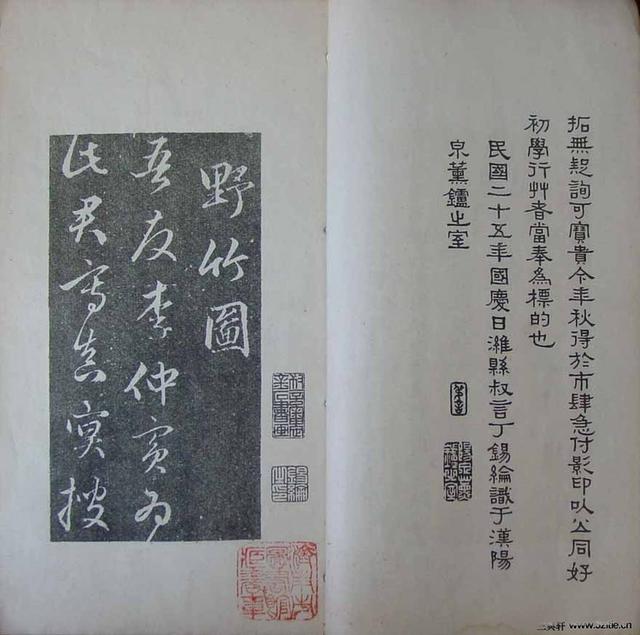 拓無疑詢可寶貴今年秋得於市肆急付影印以公同好
初學行艸者當奉為標的也
民國二十五年國慶日濰縣叔言丁錫綸識于漢陽
泉薰鑪之室
野竹圖
吾友李仲賓為
此君寫真冥搜